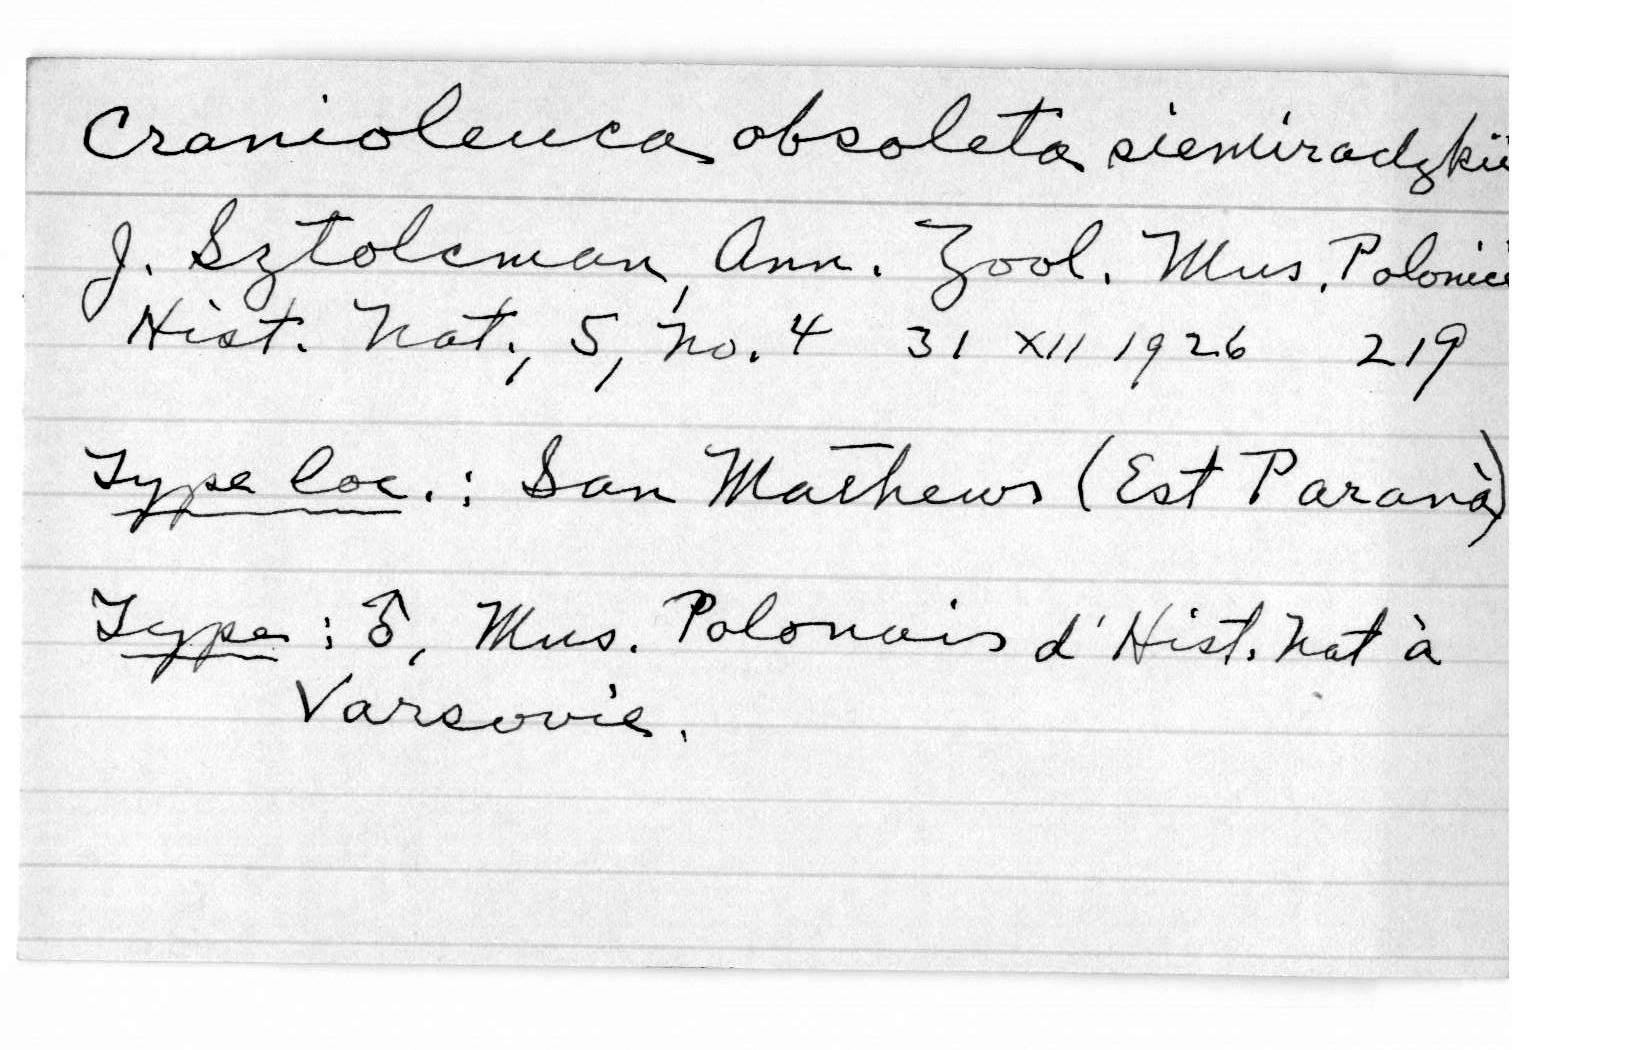 Cranioleuca obsoleta siemiradzkii
J. Sztolcman, Ann. Zool. Mus. Polonici
Hist. Nat., 5, no. 4 31 XII 1926 219
Type loc. : San Mathews (Est Paranà)
Type : ♂, Mus. Polonais d'Hist. Nat à
Varsovie.